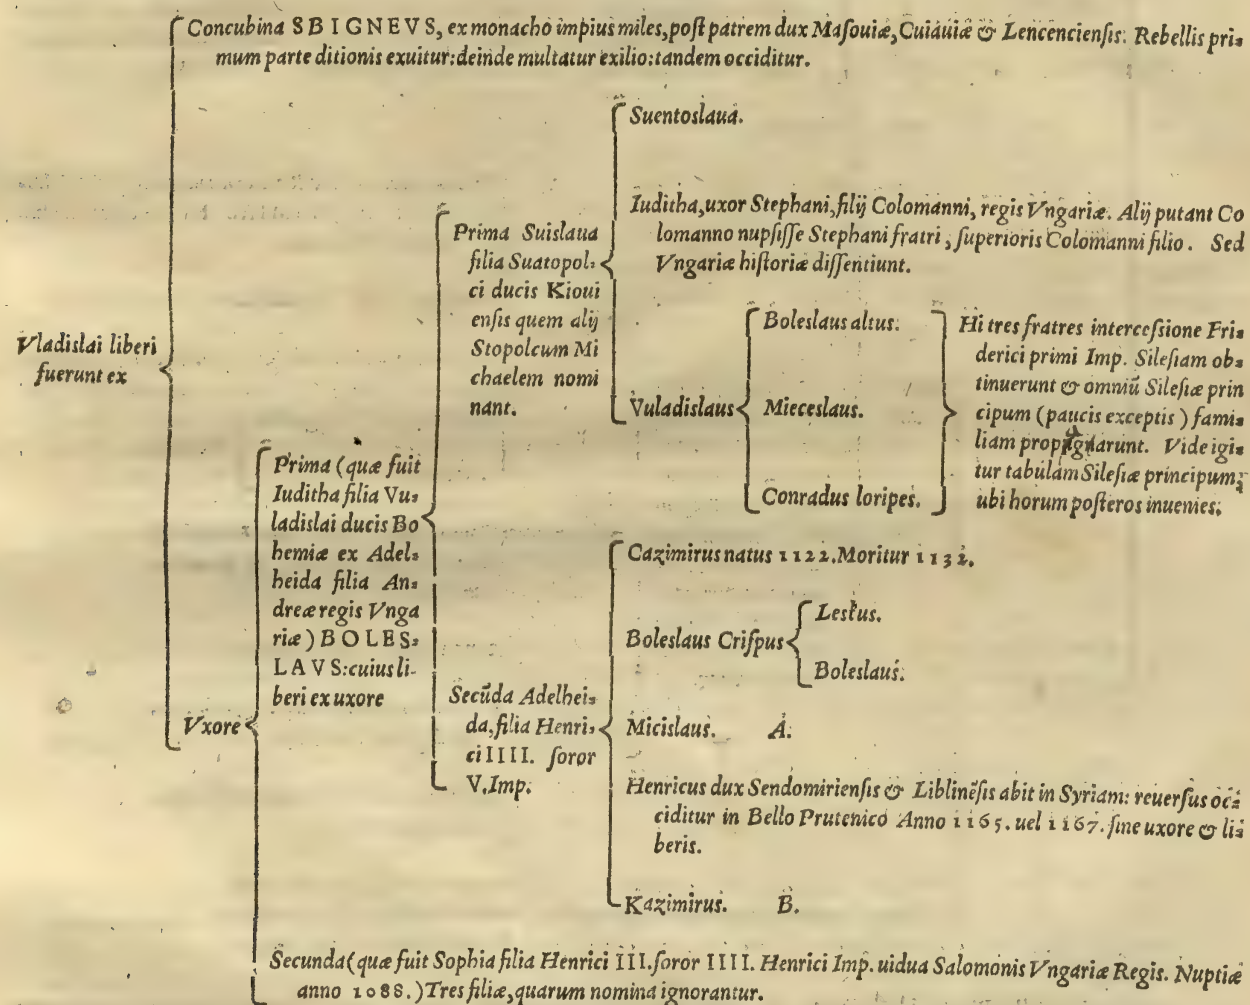 Concubina SBIGNEVS, ex monacho impius miles, post patrem dux Masouiæ, Cuiauiæ & Lencenciensis: Rebellis pri⸗
mum parte ditionis exuitur: deinde multatur exilio: tandem occiditur.
Vladislai liberi
fuerunt ex
Vxore
Prima (quæ fuit
Iuditha filia Vu⸗
ladislai ducis Bo
hemiæ ex Adel⸗
heida filia An⸗
dreæ regis Vnga
riæ) BOLES⸗
LAVS: cuius li-
beri ex uxore
Prima Suislaua
filia Suatopol⸗
ci ducis Kioui
ensis quem alij
Stopolcum Mi
chaelem nomi
nant.
Suentoslaua.
Iuditha, uxor Stephani, filij Colomanni, regis Vngariæ. Alij putant Co
lomanno nupsisse Stephani fratri, superioris Colomanni filio. Sed
Vngariæ historiæ dissentiunt.
Vuladislaus
Boleslaus altus.
Mieceslaus.
Conradus loripes.
Hi tres fratres intercessione Fri⸗
derici primi Imp. Silesiam ob⸗
tinuerunt & omniũ Silesiæ prin
cipum (paucis exceptis) fami⸗
liam propagarunt. Vide igi⸗
tur tabulam Silesiæ principum,
ubi horum posteros inuenies.
Secũda Adelhei⸗
da, filia Henri⸗
ci IIII. soror
V. Imp.
Cazimirus natus 1122. Moritur 1132.
Boleslaus Crispus
Lestus.
Boleslaus.
Micislaus. A.
Henricus dux Sendomiriensis & Liblinẽsis abit in Syriam: reuersus oc⸗
ciditur in Bello Prutenico Anno 1165. uel 1167. sine uxore & li⸗
beris.
Kazimirus. B.
Secunda (quæ fuit Sophia filia Henrici III. soror IIII. Henrici Imp. uidua Salomonis Vngariæ Regis. Nuptiæ
anno 1088.) Tres filiæ, quarum nomina ignorantur.